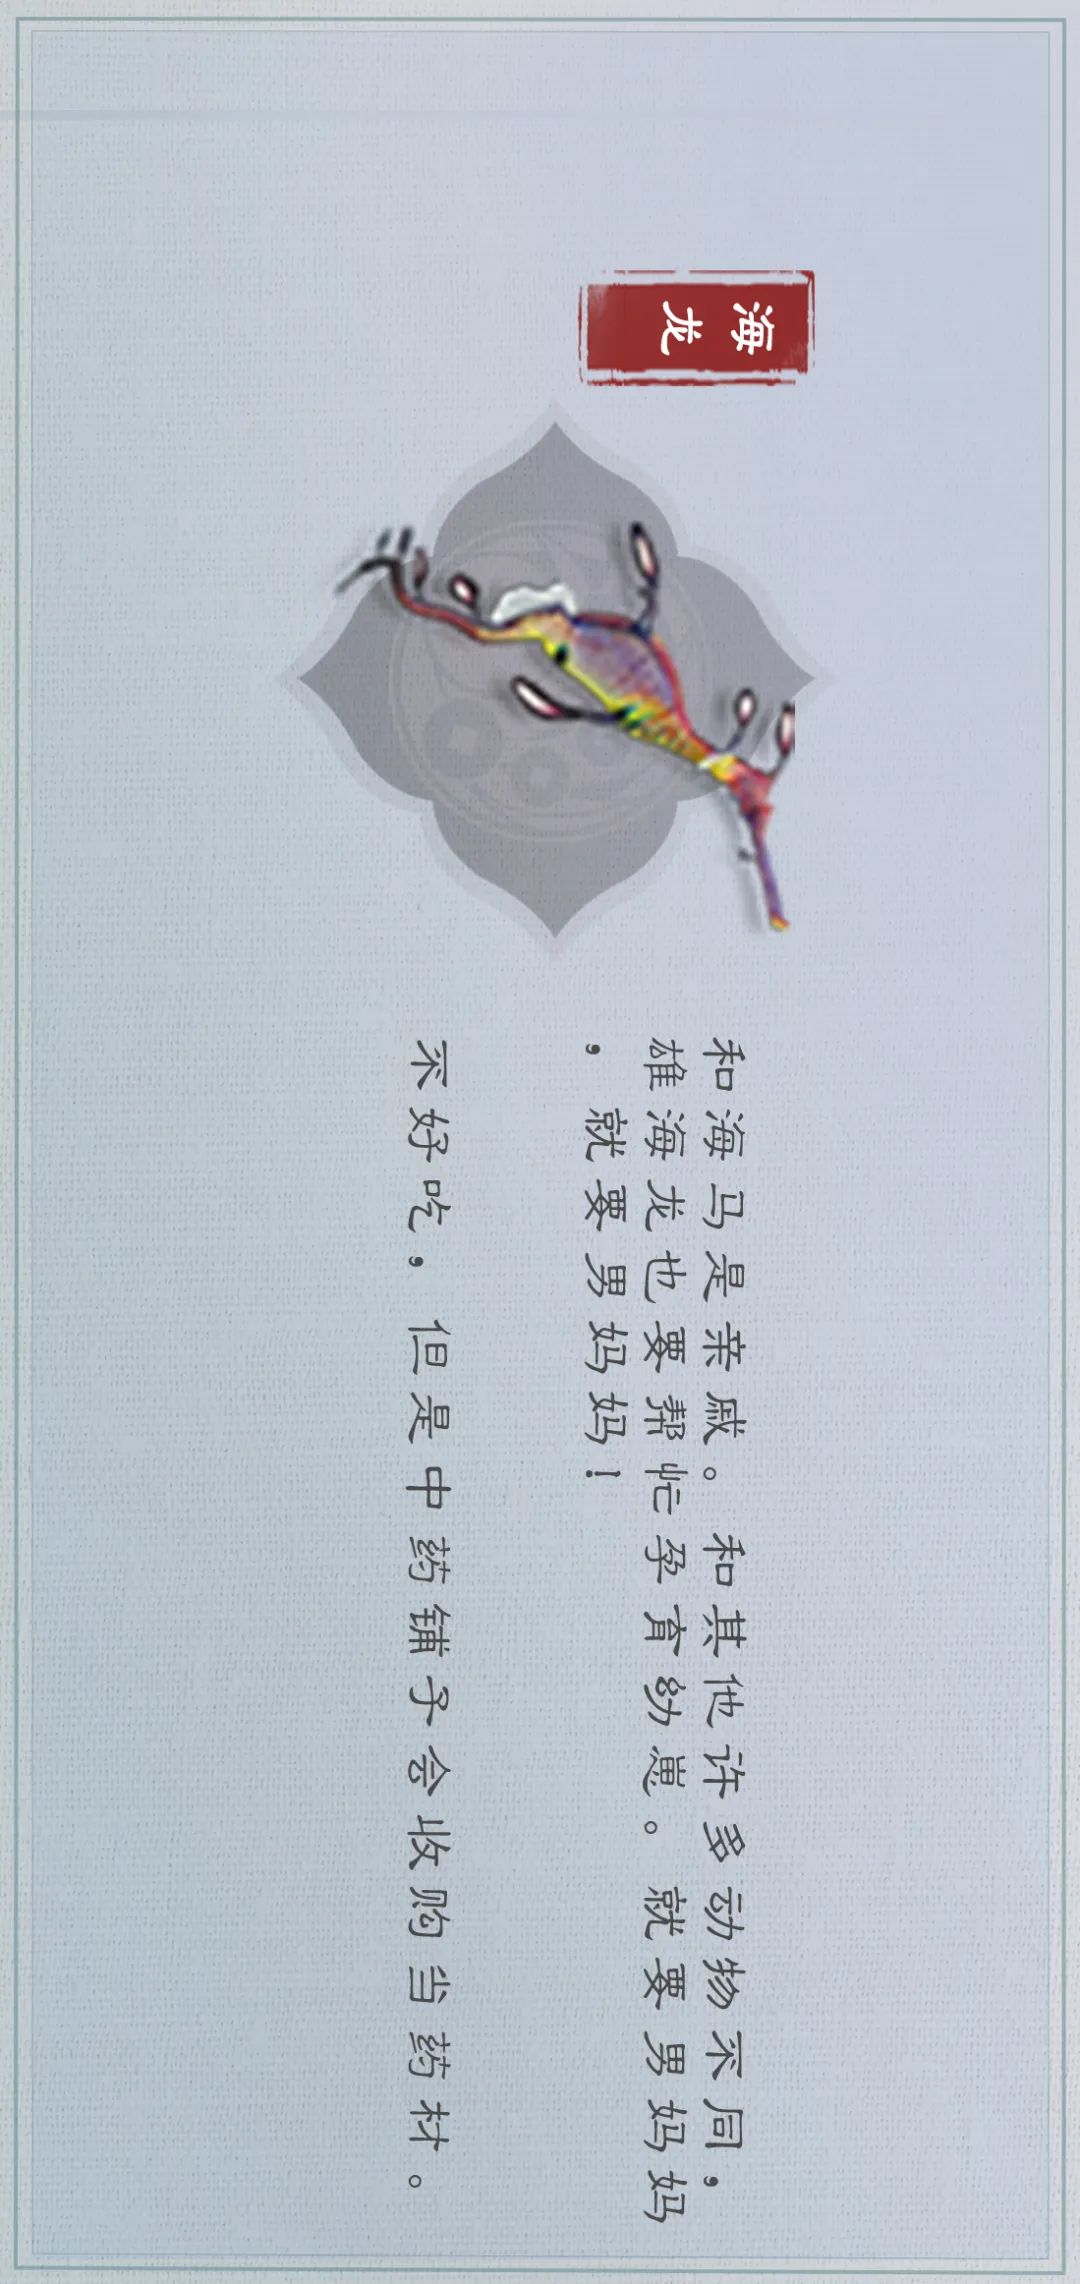 海龙
和海马是亲戚。和其他许多动物不同，
雄海龙也要帮忙孕育幼崽。就要男妈妈
，就要男妈妈！
不好吃，但是中药铺子会收购当药材。